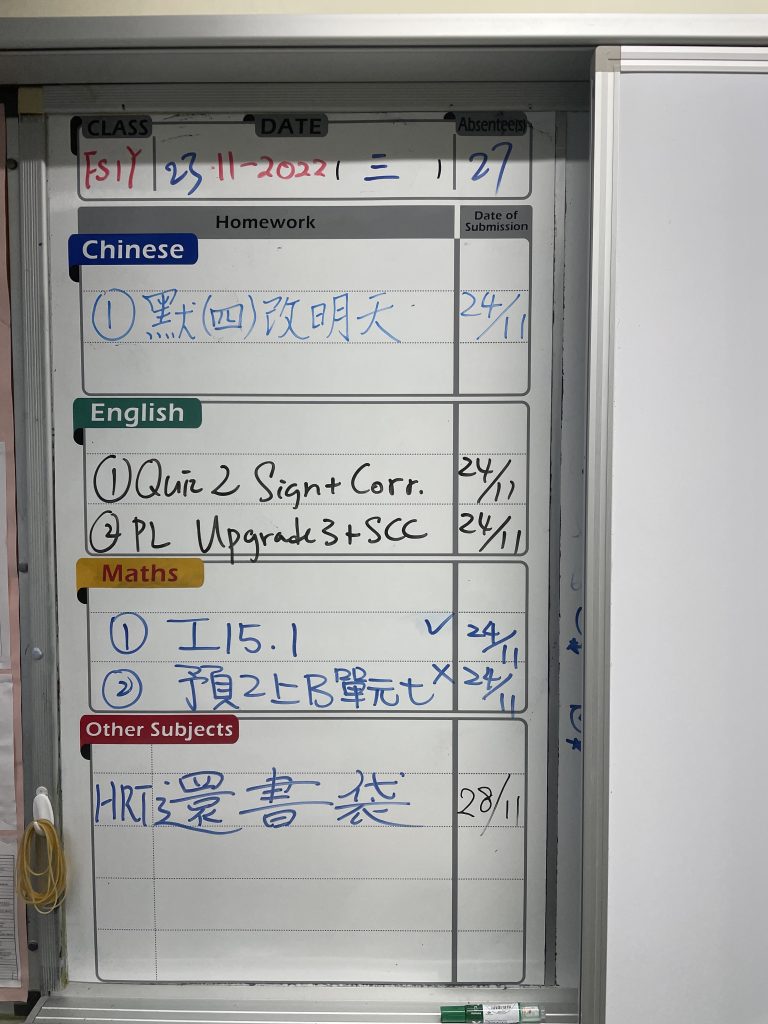 CLASS DATE Absentee(s)
FS1Y 23-11-2022 ( 三 ) 27
Homework Date of Submission
Chinese
① 默(四)改明天 24/11
English
① Quiz 2 Sign + Corr. 24/11
② PL Upgrade 3 + SCC 24/11
Maths
① 工15.1 ✓ 24/11
② 預2上B單元七 × 24/11
Other Subjects
HRT 還書袋 28/11